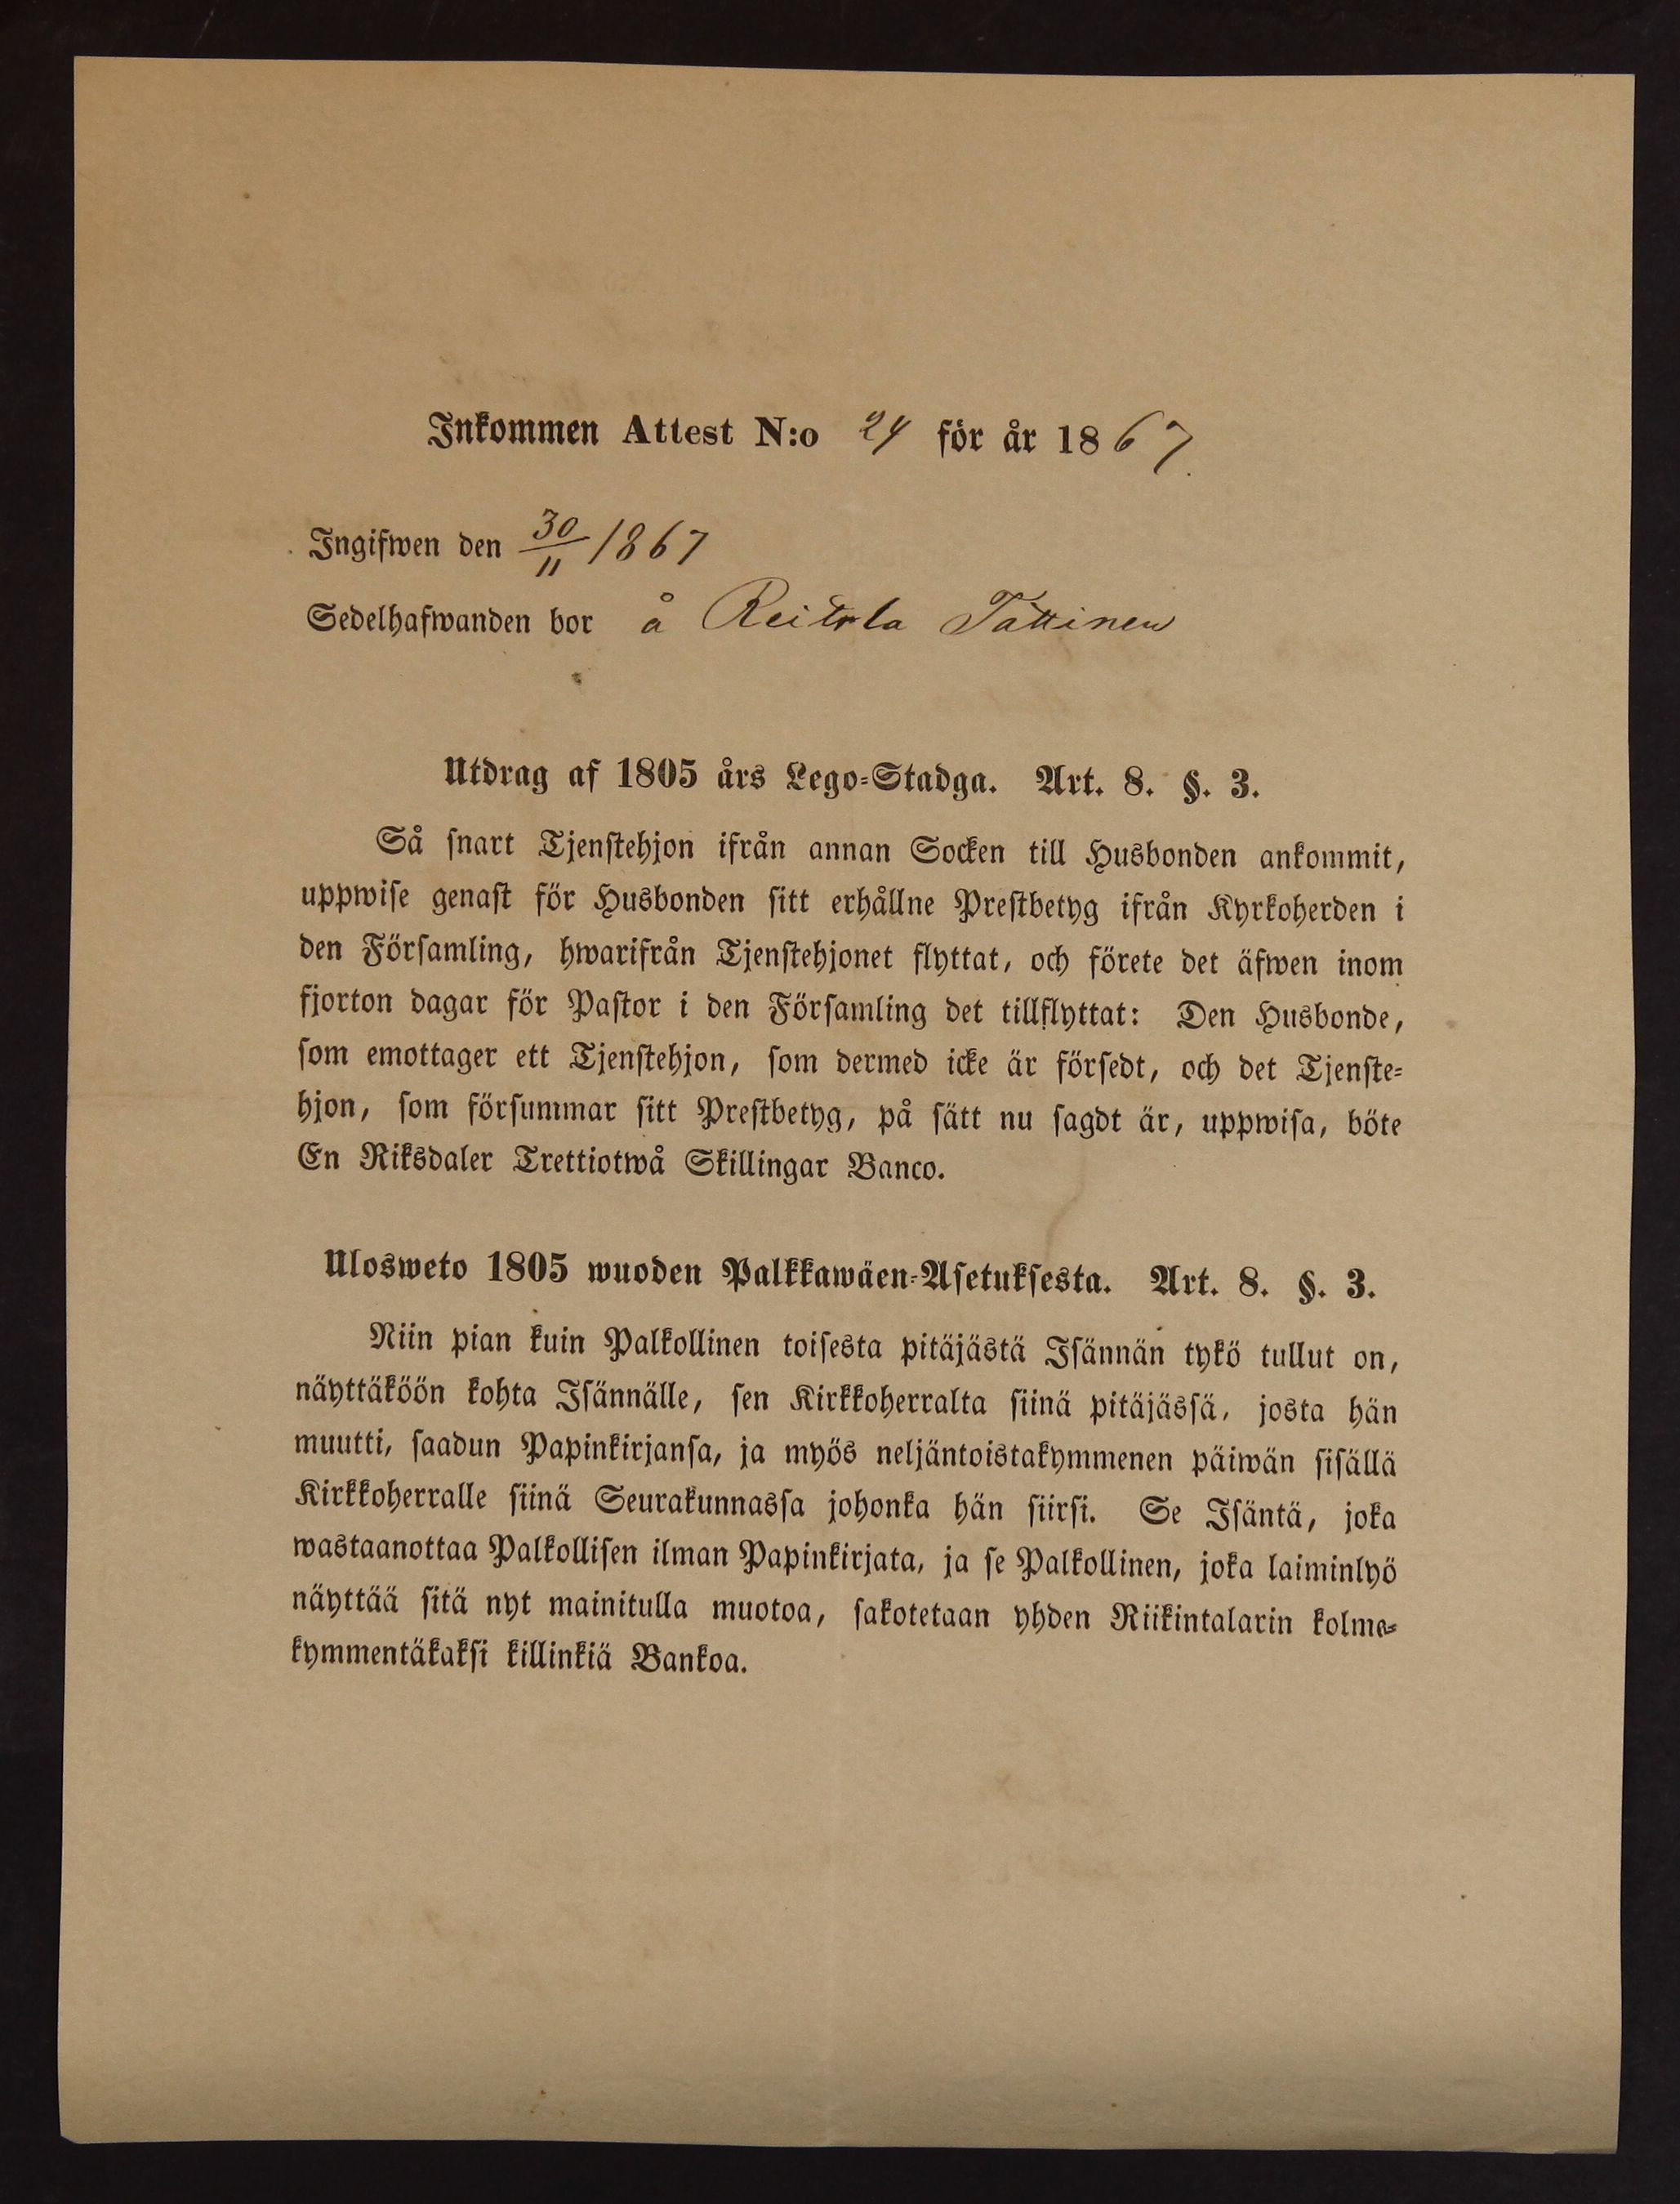 Inkommen Attest N:o 24 för år 1867.
Ingifwen den 30/11 1867
Sedelhafwanden bor å Reitola Tättinen
Utdrag af 1805 års Lego-Stadga. Art. 8. §. 3.
Så snart Tjenstehjon ifrån annan Socken till Husbonden ankommit,
uppwise genast för Husbonden sitt erhållne Prestbetyg ifrån Kyrkoherden i
den Församling, hwarifrån Tjenstehjonet flyttat, och förete det äfwen inom
fjorton dagar för Pastor i den Församling det tillflyttat: Den Husbonde,
som emottager ett Tjenstehjon, som dermed icke är försedt, och det Tjenste-
hjon, som försummar sitt Prestbetyg, på sätt nu sagdt är, uppwisa, böte
En Riksdaler Trettiotwå Skillingar Banco.
Ulosweto 1805 wuoden Palkkawäen-Asetuksesta. Art. 8. §. 3.
Niin pian kuin Palkollinen toisesta pitäjästä Isännän tykö tullut on,
näyttäköön kohta Isännälle, sen Kirkkoherralta siinä pitäjässä, josta hän
muutti, saadun Papinkirjansa, ja myös neljäntoistakymmenen päiwän sisällä
Kirkkoherralle siinä Seurakunnassa johonka hän siirsi. Se Isäntä, joka
wastaanottaa Palkollisen ilman Papinkirjata, ja se Palkollinen, joka laiminlyö
näyttää sitä nyt mainitulla muotoa, sakotetaan yhden Riikintalarin kolme-
kymmentäkaksi killinkiä Bankoa.